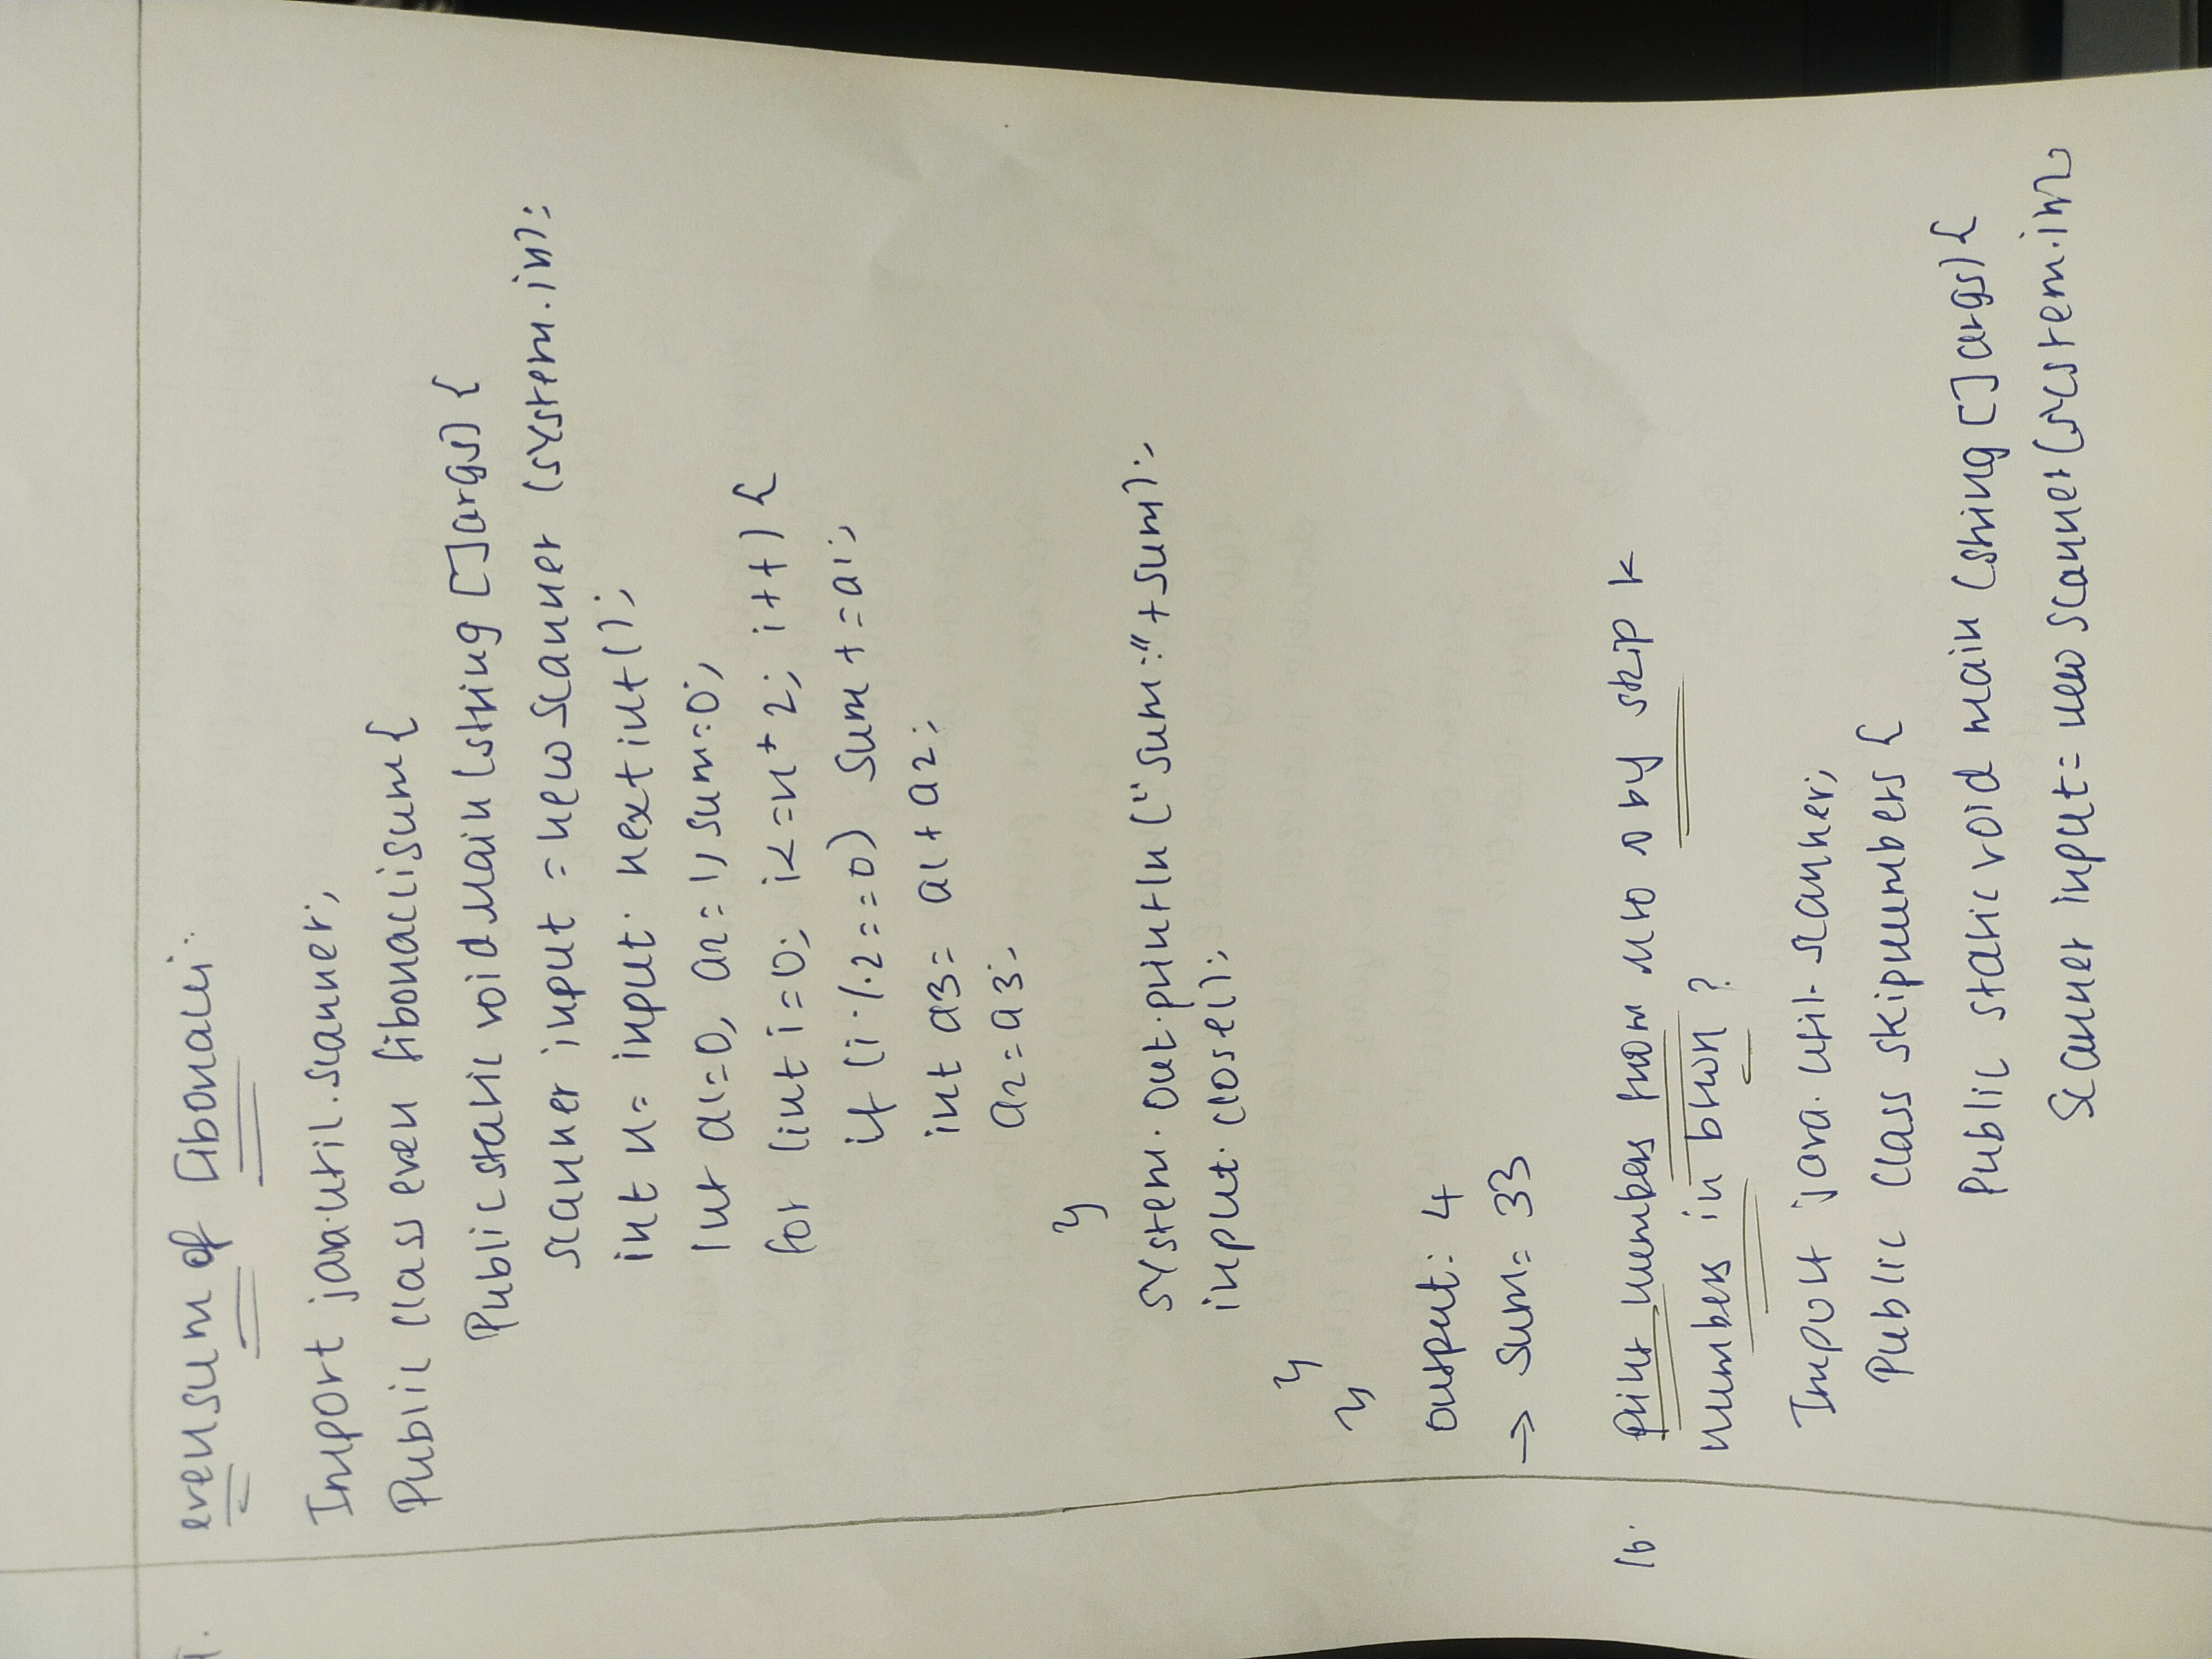 evensum of fibonacci:
Import java.util.scanner;
Public class even fibonaccisum {
Public static void Main (string [] args) {
scanner input = new Scanner (system.in);
int n = input. nextint();
Int a1=0, a2=1, sum=0;
for (int i=0; i<=n*2; i++) {
if (i%2==0) sum += a1;
int a3 = a1+a2;
a2=a3;
}
system.out.println("sum:"+sum);
input.close();
}
}
output: 4
→ sum= 33
16. print numbers from M to 0 by skip k
numbers in btwn ?
Import java.util.scanner;
Public class skipnumbers {
Public static void main (string [] args) {
Scanner input = new Scanner(system.in);